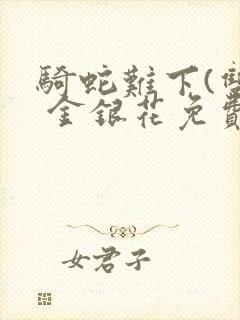 騎蛇難下(雙
金銀花免費
女君子